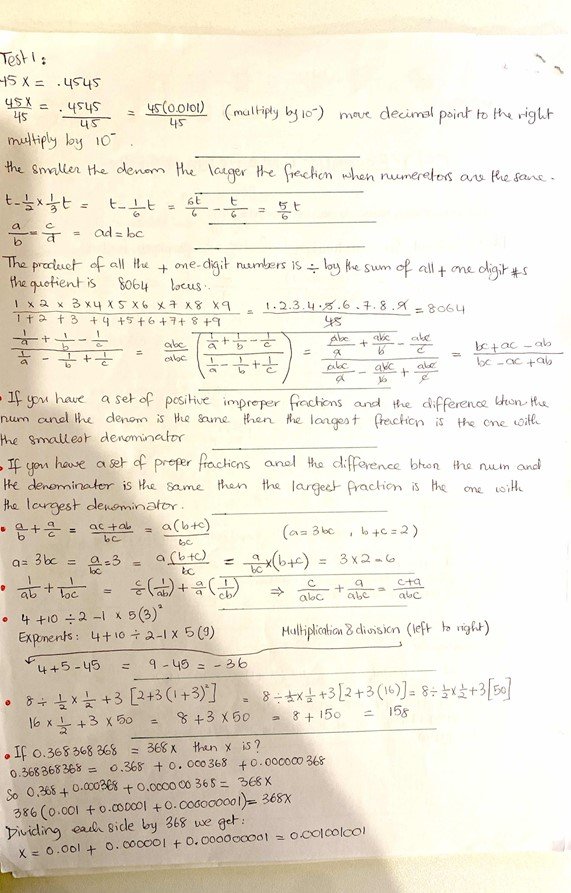 Test 1:
45 x = .4545
45x/45 = .4545/45 = 45(0.0101)/45 (multiply by 10⁻) move decimal point to the right
multiply by 10⁻.
the smaller the denom the larger the fraction when numerators are the same.
t - 1/2 × 1/3 t = t - 1/6 t = 6t/6 - t/6 = 5/6 t
a/b = c/d = ad = bc
The product of all the + one-digit numbers is ÷ by the sum of all + one digit #s
the quotient is 8064
1 × 2 × 3 × 4 × 5 × 6 × 7 × 8 × 9 / 1 + 2 + 3 + 4 + 5 + 6 + 7 + 8 + 9 = 1.2.3.4.5.6.7.8.9 / 45 = 8064
(1/a + 1/b - 1/c) / (1/a - 1/b + 1/c) = abc/abc ((1/a + 1/b - 1/c) / (1/a - 1/b + 1/c)) = (abc/a + abc/b - abc/c) / (abc/a - abc/b + abc/c) = (bc + ac - ab) / (bc - ac + ab)
• If you have a set of positive improper fractions and the difference btwn the
num and the denom is the same then the largest fraction is the one with
the smallest denominator
• If you have a set of proper fractions and the difference btwn the num and
the denominator is the same then the largest fraction is the one with
the largest denominator.
• a/b + a/c = (ac + ab)/bc = a(b+c)/bc (a = 3bc , b + c = 2)
a = 3bc = a/bc = 3 = a(b+c)/bc = a/bc × (b+c) = 3 × 2 = 6
• 1/ab + 1/bc = c/c (1/ab) + a/a (1/cb) ⇒ c/abc + a/abc = (c+a)/abc
• 4 + 10 ÷ 2 - 1 × 5(3)²
Exponents: 4 + 10 ÷ 2 - 1 × 5(9) Multiplication & division (left to right)
4 + 5 - 45 = 9 - 45 = - 36
• 8 ÷ 1/2 × 1/2 + 3 [2 + 3(1+3)²] = 8 ÷ 1/2 × 1/2 + 3[2 + 3(16)] = 8 ÷ 1/2 × 1/2 + 3[50]
16 × 1/2 + 3 × 50 = 8 + 3 × 50 = 8 + 150 = 158
• If 0.368368368 = 368x then x is?
0.368368368 = 0.368 + 0.000368 + 0.000000368
So 0.368 + 0.000368 + 0.000000368 = 368x
386(0.001 + 0.000001 + 0.000000001) = 368x
Dividing each side by 368 we get:
x = 0.001 + 0.000001 + 0.000000001 = 0.001001001